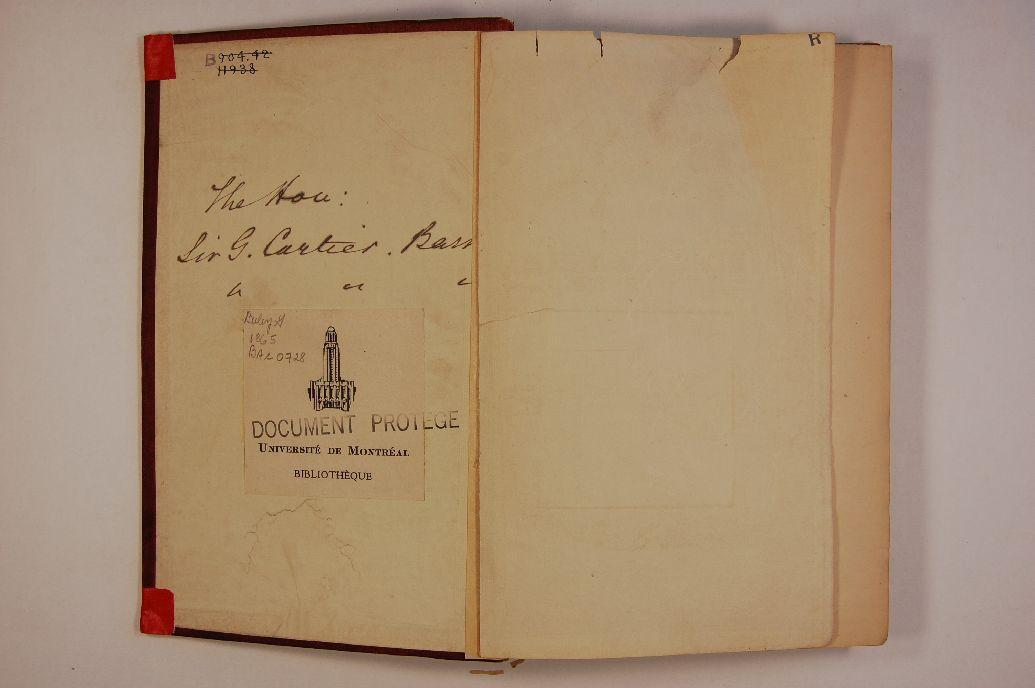 B904.42
H938
R
The Hon:
Sir G. Cartier. Bar
1865
BAR 0728
DOCUMENT PROTEGE
UNIVERSITÉ DE MONTRÉAL
BIBLIOTHÈQUE